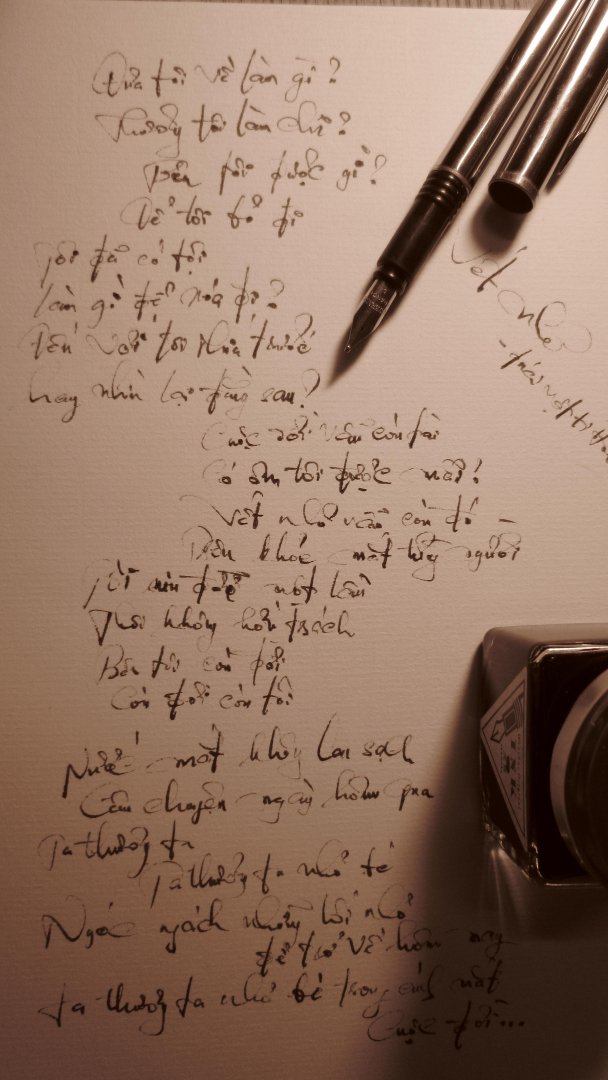 Đưa tôi về làm gì?
Thương tôi làm chi?
Đến tôi được gì?
Để tôi bỏ đi
Tôi đã có tội
làm gì để xóa đi?
Đến với tôi phía trước
hay nhìn lại đằng sau?
Cuộc đời vẫn còn dài
Có ôm tôi được mãi!
Vết nhơ vẫn còn đó –
Đến khóc mắt từng người
Tôi xin được một lần
Thôi không hờn trách
Bên tôi còn đời
Còn đời còn tôi
Nước mắt không lau sạch
Câu chuyện ngày hôm qua
Ta thương ta
Ta thương ta nhỏ bé
Ngóc ngách những lối nhỏ
để trở về hôm nay
ta thương ta nhỏ bé trong ánh mắt
Cuộc đời...
Vết nhơ